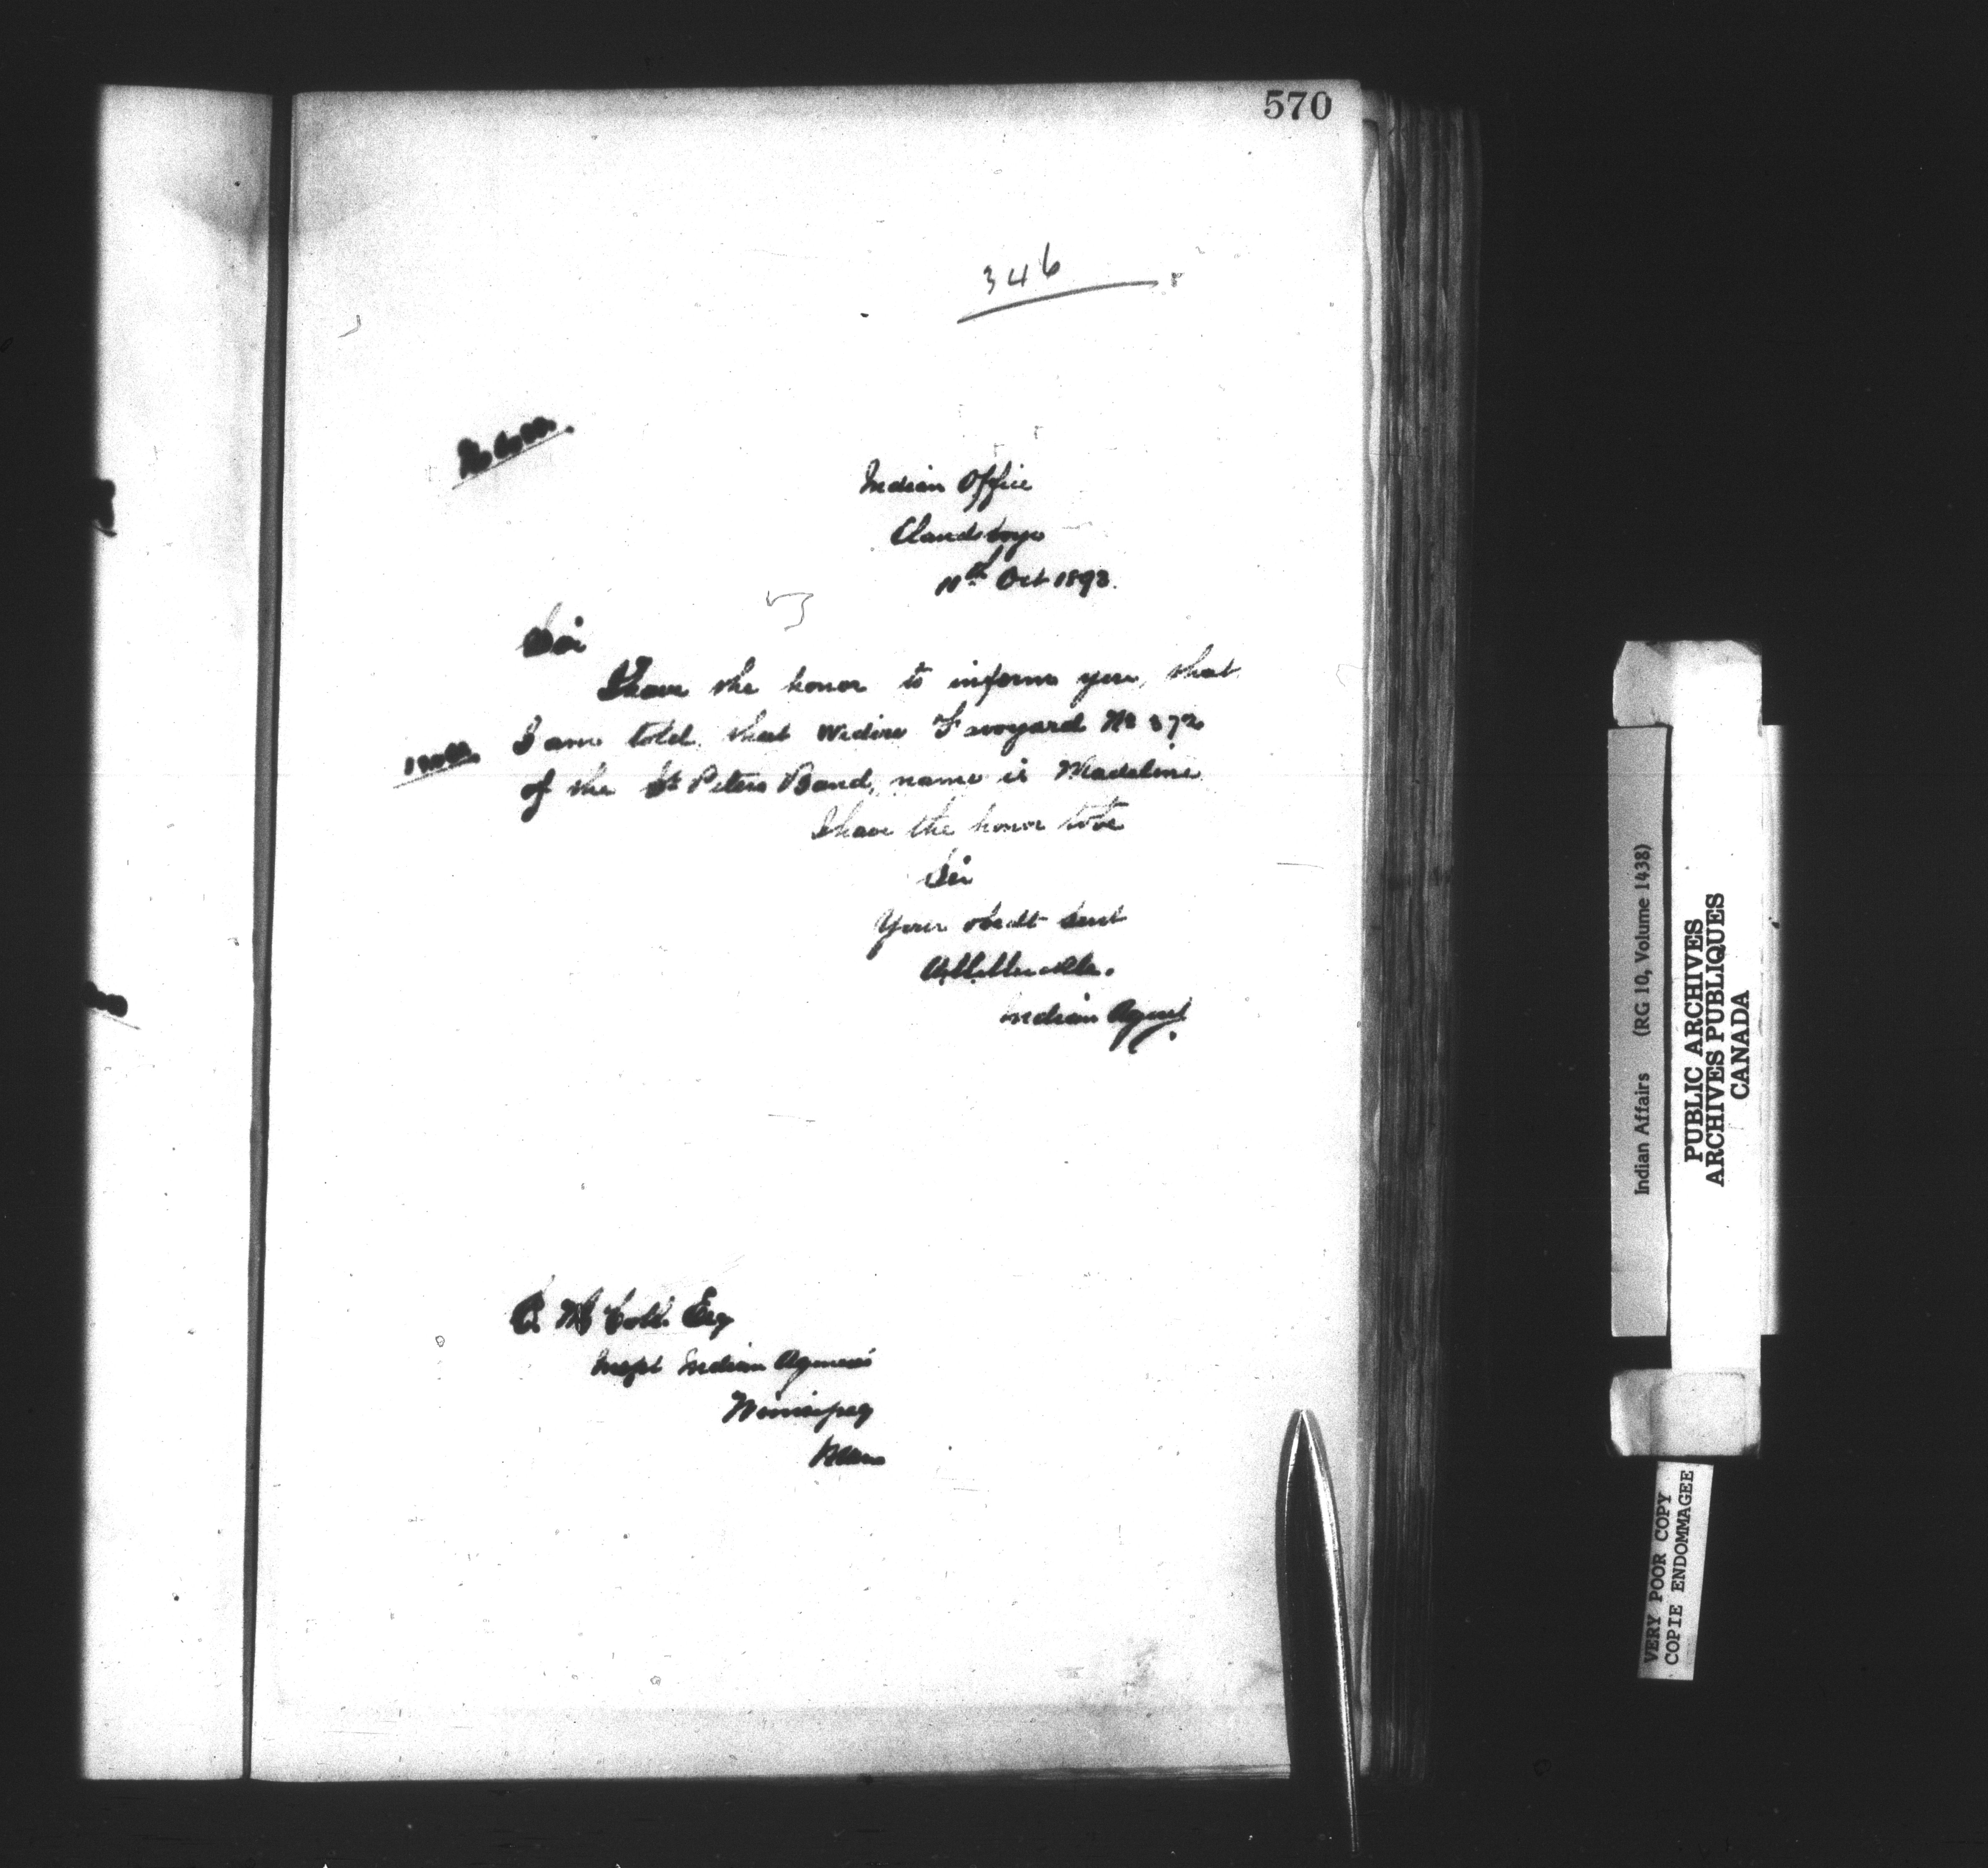 570
346
Indian Office
Clandeboye
11th Oct 1893.
Sir
I have the honor to inform you, that
I am told that Widow Favoyard No 372
of the St Peters Band, name is Madeline
I have the honor to be
Sir
Your obedt Servt
Indian Agent
E. McColl Esq
Inspt Indian Agencies
Winnipeg
Man
Indian Affairs (RG 10, Volume 1438)
PUBLIC ARCHIVES
ARCHIVES PUBLIQUES
CANADA
VERY POOR COPY
COPIE ENDOMMAGEE